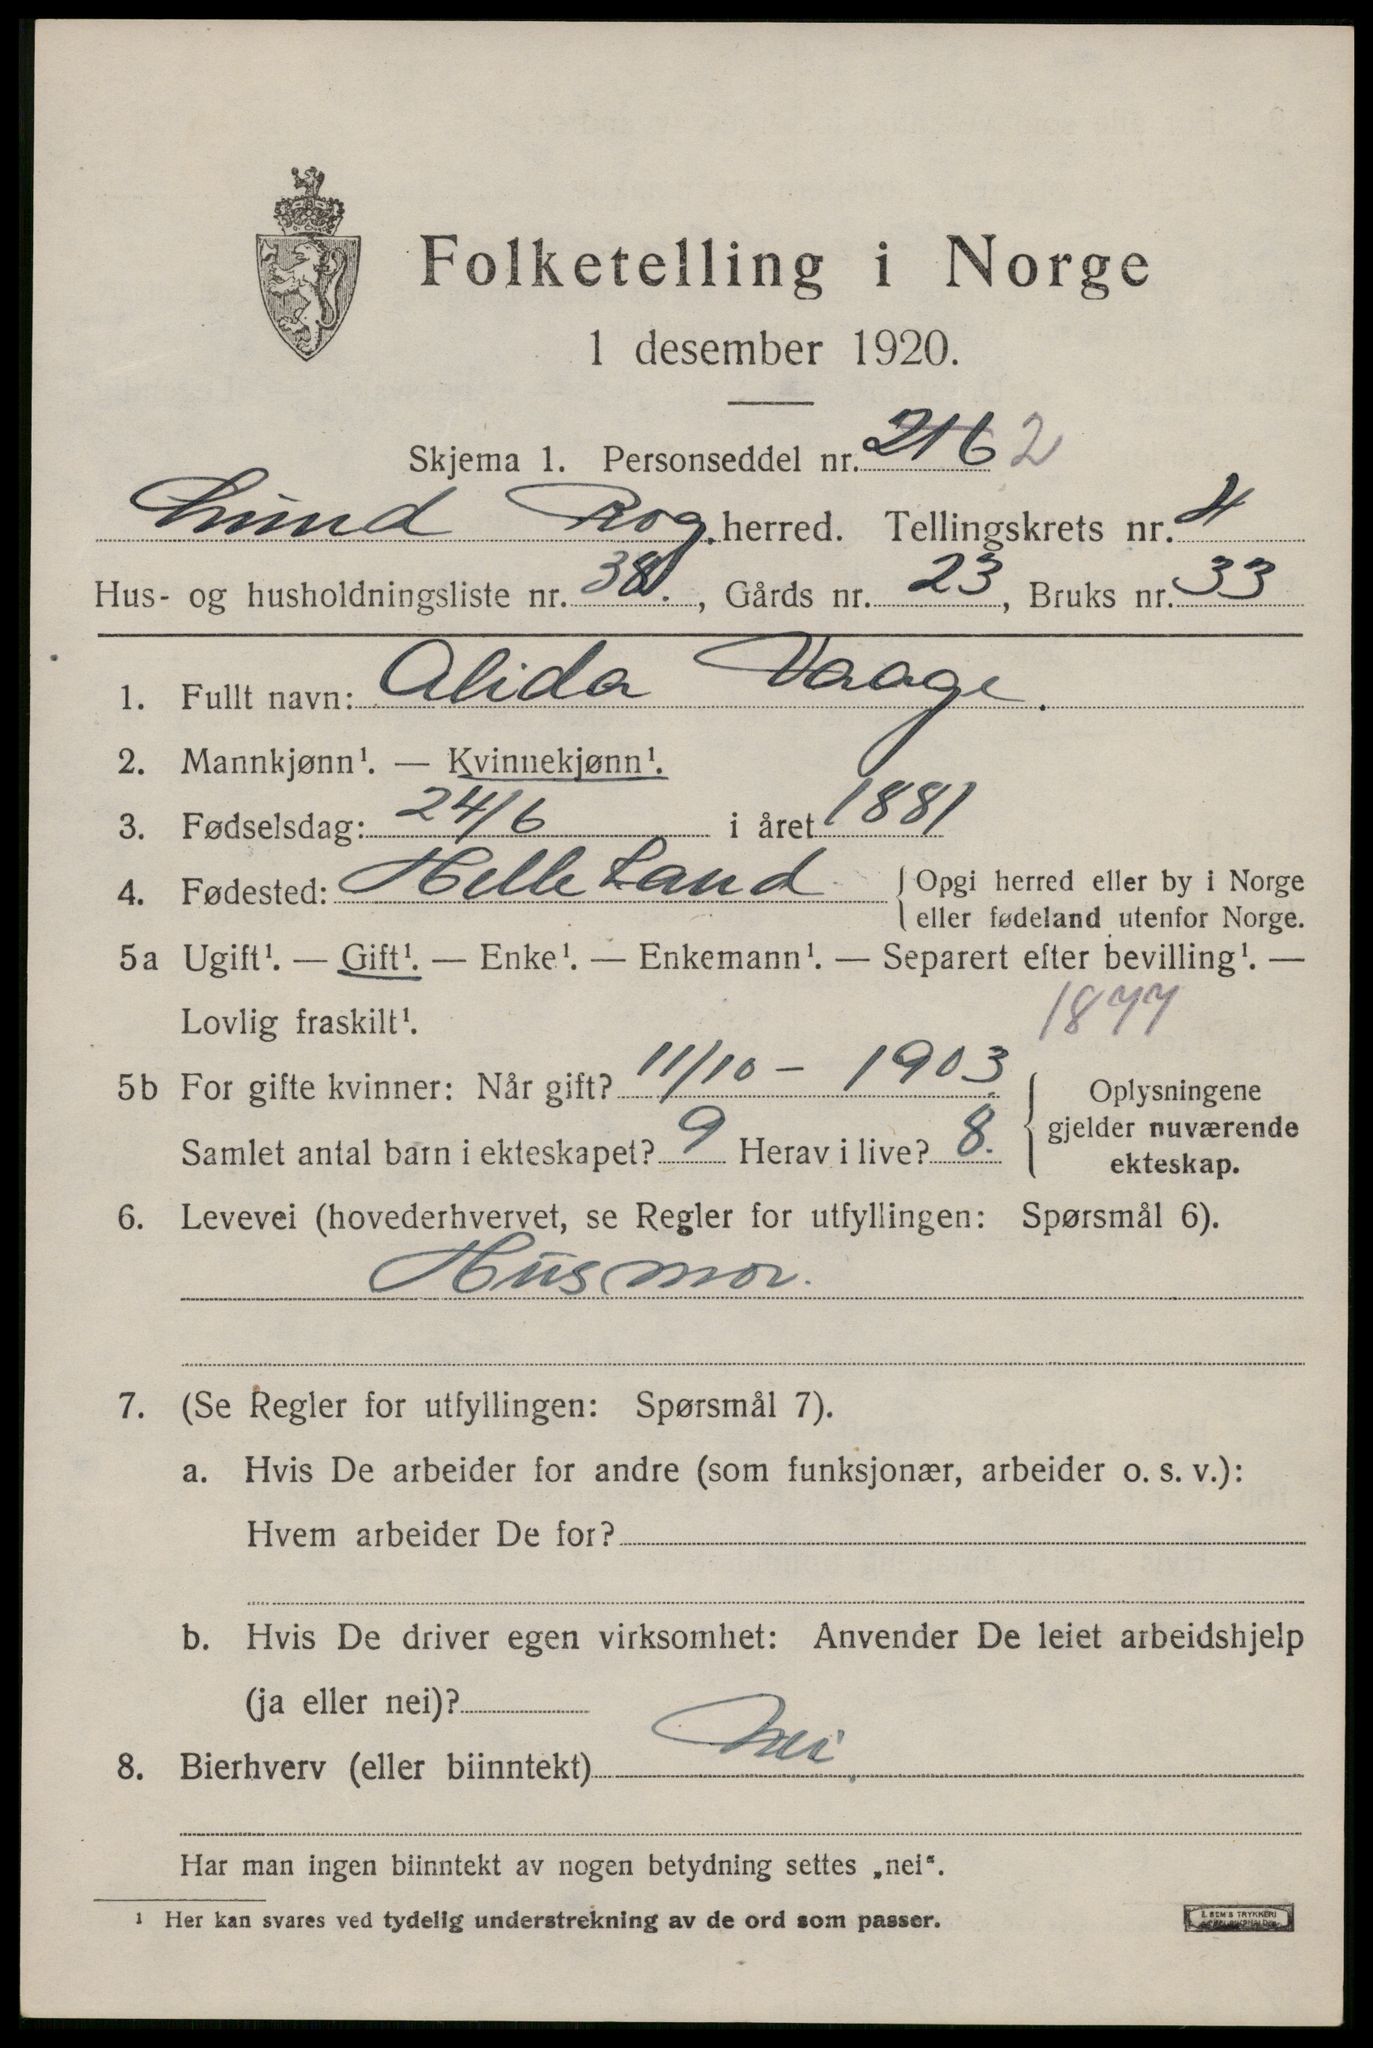 Folketelling i Norge
1 desember 1920.
Skjema 1. Personseddel nr. 216 2
Lund Rog. herred. Tellingskrets nr. 4
Hus- og husholdningsliste nr. 38., Gårds nr. 23, Bruks nr. 33
1. Fullt navn: Alida Vaage.
2. Mannkjønn¹. — Kvinnekjønn¹.
3. Fødselsdag: 24/6 i året 1881
4. Fødested: Helleland { Opgi herred eller by i Norge
eller fødeland utenfor Norge.
5a Ugift¹. — Gift¹. — Enke¹. — Enkemann¹. — Separert efter bevilling¹. —
Lovlig fraskilt¹. 1877
5b For gifte kvinner: Når gift? 11/10 - 1903
Samlet antal barn i ekteskapet? 9 Herav i live? 8.
Oplysningene
gjelder nuværende
ekteskap.
6. Levevei (hovederhvervet, se Regler for utfyllingen: Spørsmål 6).
Husmor.
7. (Se Regler for utfyllingen: Spørsmål 7).
a. Hvis De arbeider for andre (som funksjonær, arbeider o. s. v.):
Hvem arbeider De for?
b. Hvis De driver egen virksomhet: Anvender De leiet arbeidshjelp
(ja eller nei)?
8. Bierhverv (eller biinntekt) Nei.
Har man ingen biinntekt av nogen betydning settes „nei“.
¹ Her kan svares ved tydelig understrekning av de ord som passer.